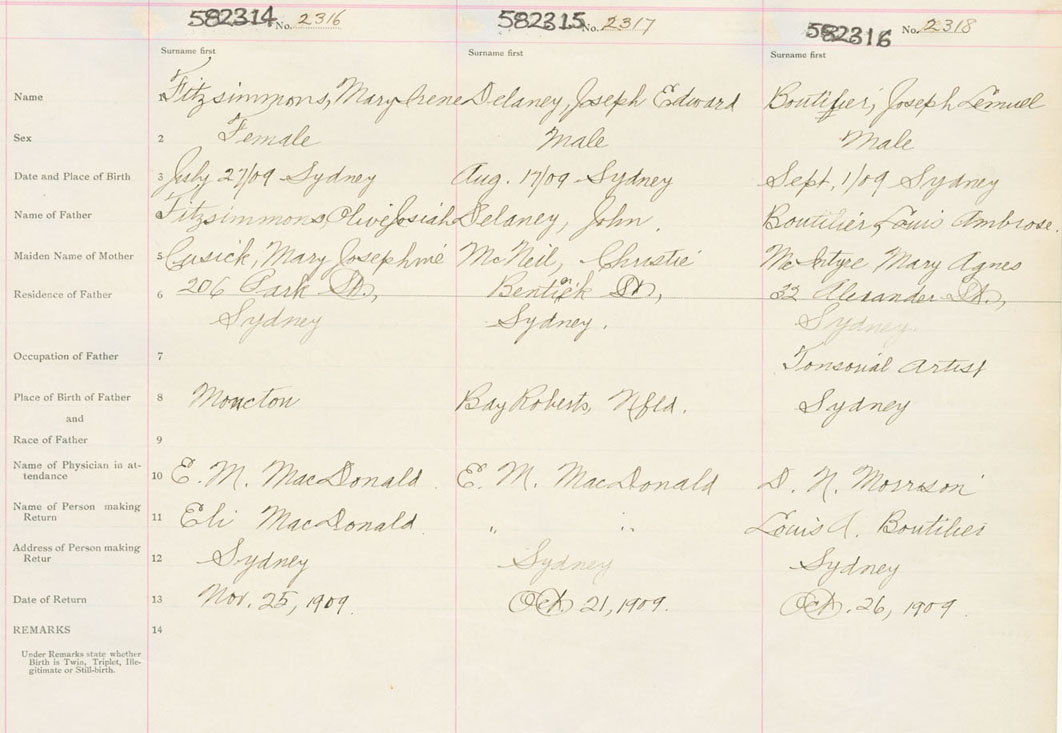 582314 No. 2316 582315 No. 2317 582316 No. 2318
Surname first Surname first Surname first
Name 1 Fitzsimmons, Mary Irene Delaney, Joseph Edward Boutilier, Joseph Lemuel
Sex 2 Female Male Male
Date and Place of Birth 3 July 27/09 Sydney Aug. 17/09 Sydney Sept. 1/09 Sydney
Name of Father Fitzsimmons Olive Josiah Delaney, John. Boutilier, Louis Ambrose.
Maiden Name of Mother 5 Cusick, Mary Josephine McNeil, Christie McIntyee Mary Agnes
Residence of Father 6 206 Park St., Bentick St., 32 Alexander St.,
Sydney Sydney. Sydney.
Occupation of Father 7 Tonsorial Artist
Place of Birth of Father 8 Moncton Bay Roberts, Nfld. Sydney
and
Race of Father 9
Name of Physician in at-
tendance 10 E. M. MacDonald E. M. MacDonald D. N. Morrison
Name of Person making
Return 11 Eli MacDonald " " Louis A. Boutilier
Address of Person making
Retur 12 Sydney Sydney Sydney
Date of Return 13 Nov. 25, 1909. Oct. 21, 1909. Oct. 26, 1909
REMARKS 14
Under Remarks state whether
Birth is Twin, Triplet, Ille-
gitimate or Still-birth.